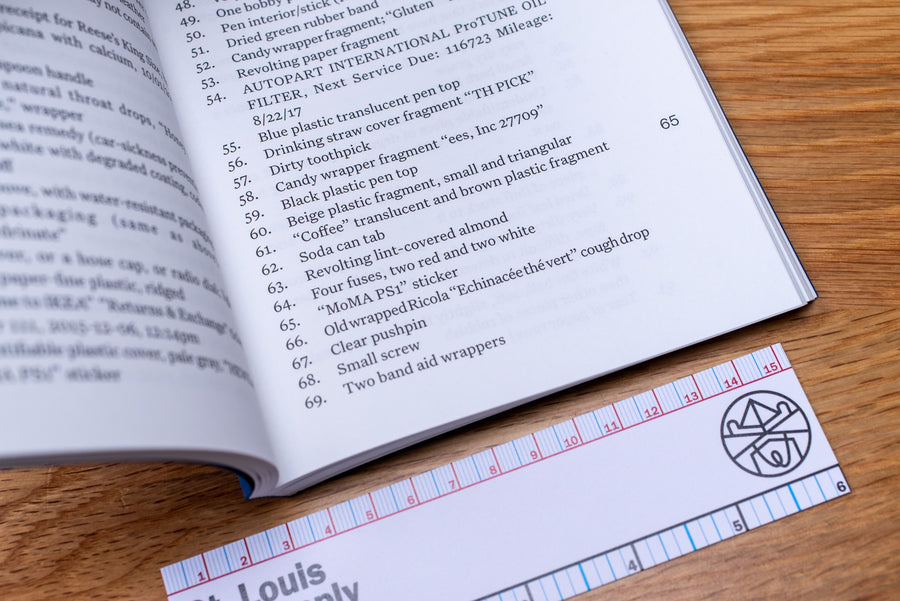 receipt for Reese's King
with calcium,
spoon handle
natural throat drops,
wrapper
remedy (car-sickness
white with degraded coating,
with water-resistant
packaging (same as
or a hose cap, or radio
paper-fine plastic, ridged
"Returns & Exchange"
plastic cover, pale gray,
sticker
48.
49. One bobby
50. Pen interior/stick
51. Dried green rubber band
52. Candy wrapper fragment; "Gluten
53. Revolting paper fragment
54. AUTOPART INTERNATIONAL PROTUNE OIL
FILTER, Next Service Due: 116723 Mileage:
8/22/17
55. Blue plastic translucent pen top
56. Drinking straw cover fragment "TH PICK"
57. Dirty toothpick
58. Candy wrapper fragment "ees, Inc 27709"
59. Black plastic pen top
60. Beige plastic fragment, small and triangular
61. "Coffee" translucent and brown plastic fragment
62. Soda can tab
63. Revolting lint-covered almond
64. Four fuses, two red and two white
65. "MoMA PS1" sticker
66. Old wrapped Ricola "Echinacée thé vert" cough drop
67. Clear pushpin
68. Small screw
69. Two band aid wrappers
65
1 2 3 4 5 6 7 8 9 10 11 12 13 14 15
St. Louis
4 5 6